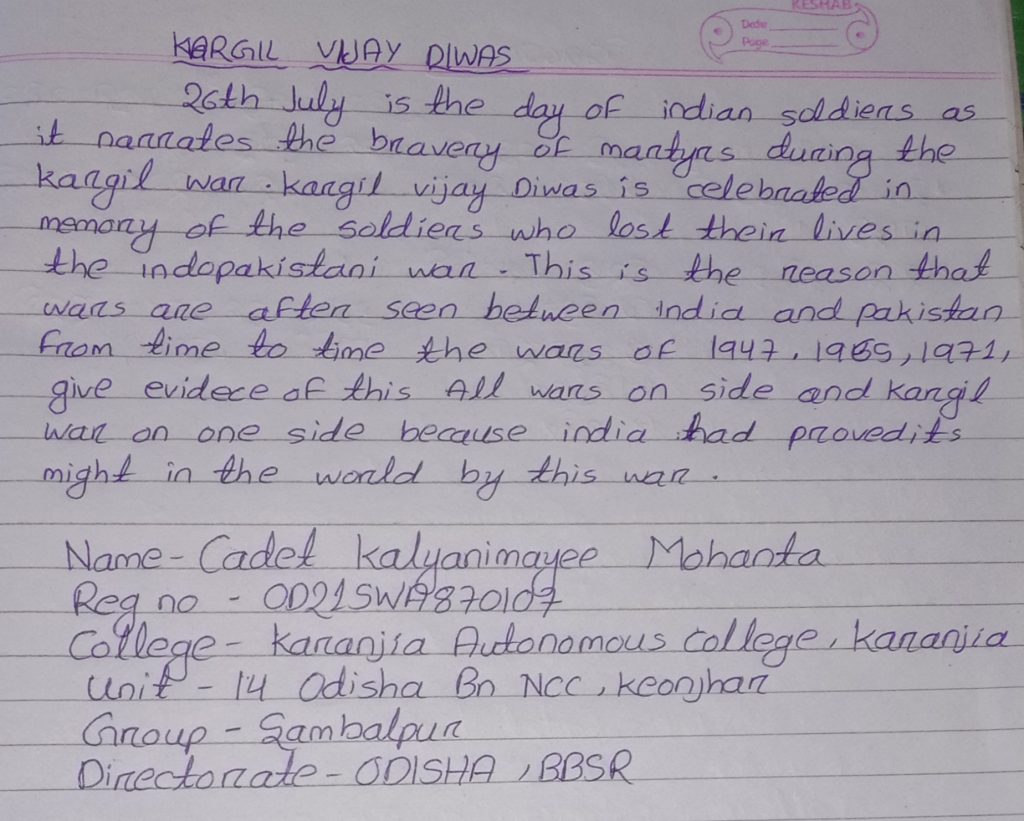 KESHAB
Date
Page
KARGIL VIJAY DIWAS
26th July is the day of indian soldiers as
it narrates the bravery of martyrs during the
kargil war. kargil vijay Diwas is celebrated in
memory of the soldiers who lost their lives in
the indopakistani war. This is the reason that
wars are after seen between india and pakistan
from time to time the wars of 1947, 1965, 1971,
give evidece of this All wars on side and kargil
war on one side because india had provedits
might in the world by this war.
Name - Cadet Kalyanimayee Mohanta
Reg no - OD21SWA870107
College - Karanjia Autonomous college, karanjia
Unit - 14 Odisha Bn NCC, keonjhar
Group - Sambalpur
Directorate - ODISHA, BBSR